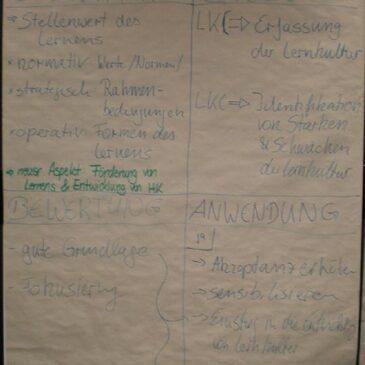 • Stellenwert des
Lernens
• normativ Werte/Normen/
• strategisch Rahmen-
bedingungen
• operativ Formen des
Lernens
→ neuer Aspekt Förderung von
Lernens & Entwicklung von HK
LK ⇒ Erfassung
der Lernkultur
LK ⇒ Identifikation
von Stärken
& Schwächen
der Lernkultur
BEWERTUNG
- gute Grundlage
- fokussierung
ANWENDUNG
→ Akzeptanz erhöhen
→ sensibilisieren
→ Einstieg in die
von